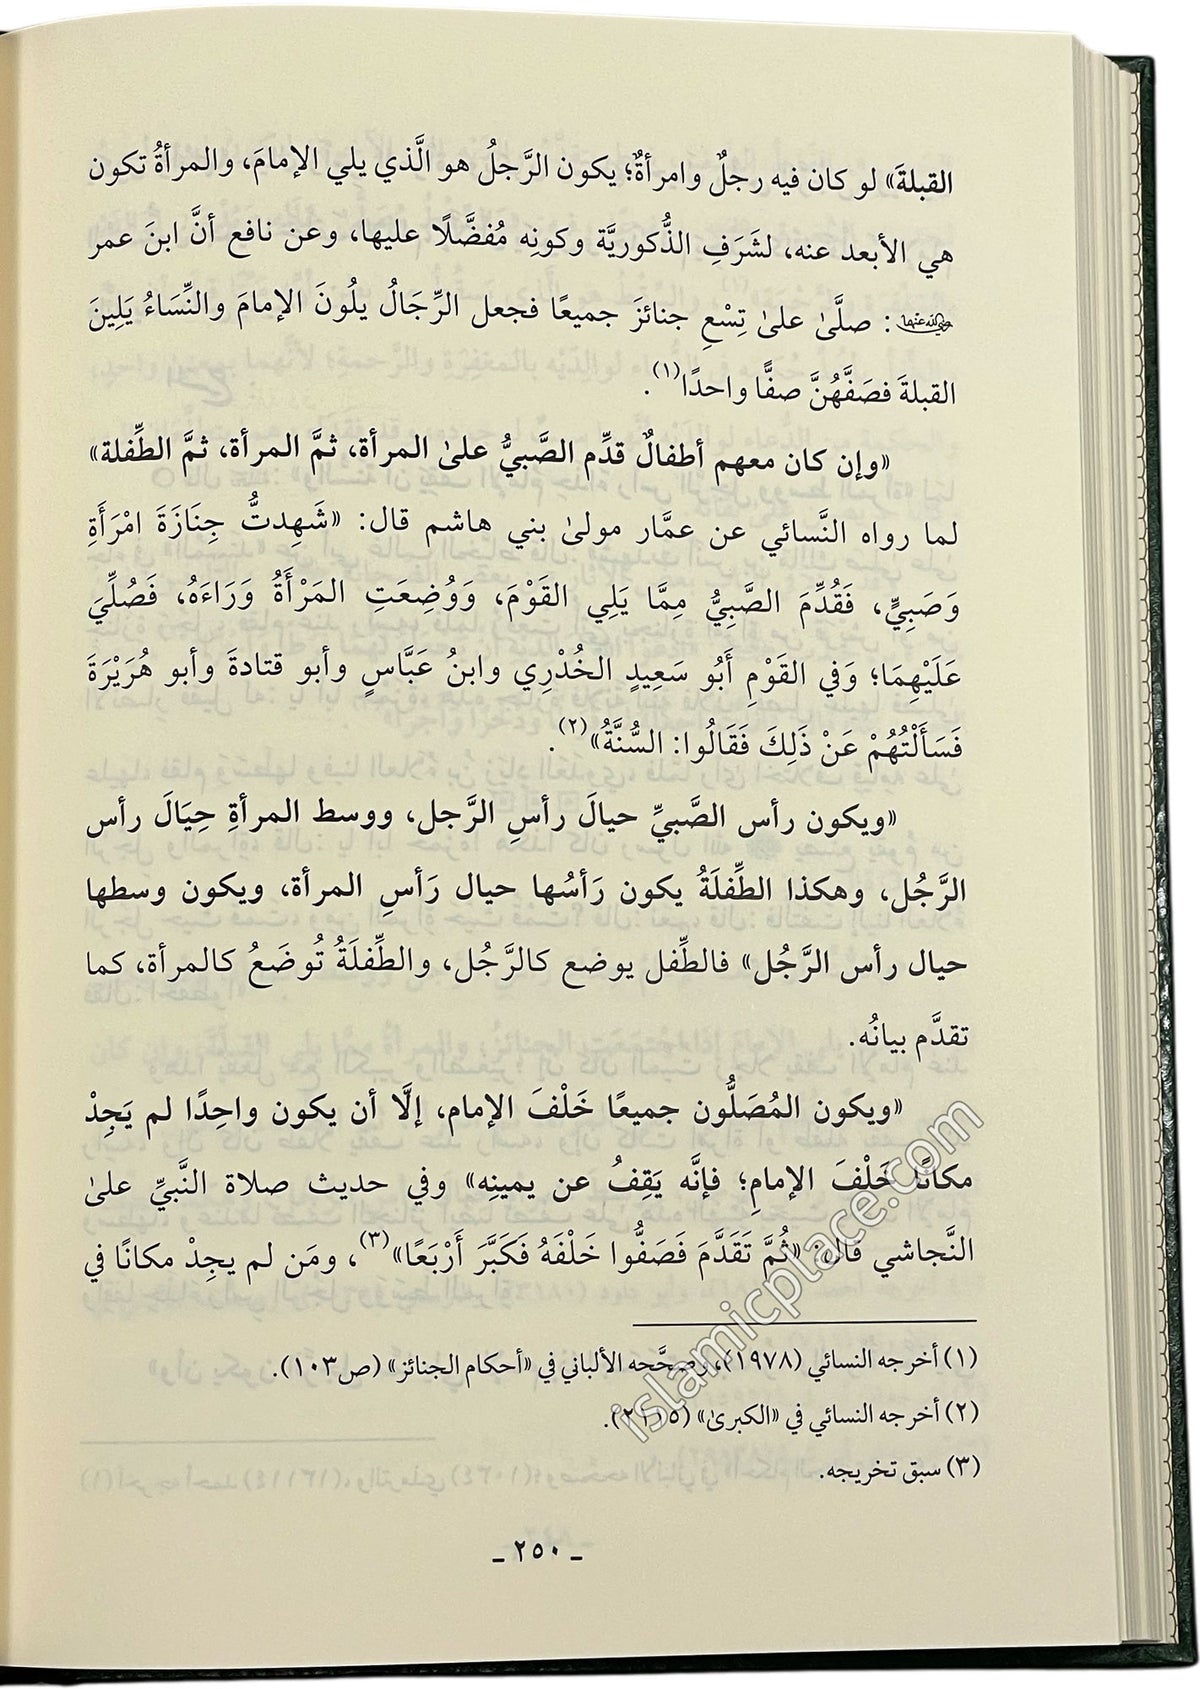 القبلةَ» لو كان فيه رجلٌ وامرأةٌ؛ يكون الرَّجلُ هو الَّذي يلي الإمامَ، والمرأةُ تكون
هي الأبعد عنه، لشَرَفِ الذُّكوريَّة وكونِه مُفضَّلًا عليها، وعن نافع أنَّ ابنَ عمر
رضي الله عنهما: صلَّىٰ علىٰ تِسْعِ جنائزَ جميعًا فجعل الرِّجَالُ يلُونَ الإمامَ والنِّسَاءُ يَلِينَ
القبلةَ فصَفَّهُنَّ صفًّا واحدًا(١).
«وإن كان معهم أطفالٌ قدِّم الصَّبيُّ علىٰ المرأة، ثمَّ المرأة، ثمَّ الطِّفلة»
لما رواه النَّسائي عن عمَّار مولىٰ بني هاشم قال: «شَهِدتُّ جِنَازَةَ امْرَأَةٍ
وَصَبِيٍّ، فَقُدِّمَ الصَّبِيُّ مِمَّا يَلِي القَوْمَ، وَوُضِعَتِ المَرْأَةُ وَرَاءَهُ، فَصُلِّيَ
عَلَيْهِمَا؛ وَفي القَوْمِ أَبُو سَعِيدٍ الخُدْرِي وابنُ عَبَّاسٍ وأبو قتادةَ وأبو هُرَيْرَةَ
فَسَأَلْتُهُمْ عَنْ ذَلِكَ فَقَالُوا: السُّنَّةُ»(٢).
«ويكون رأس الصَّبيِّ حيالَ رأسِ الرَّجل، ووسط المرأةِ حِيَالَ رأس
الرَّجُل، وهكذا الطِّفلَةُ يكون رَأسُها حيال رَأسِ المرأة، ويكون وسطها
حيال رأس الرَّجُل» فالطِّفل يوضع كالرَّجُل، والطِّفلَةُ تُوضَعُ كالمرأة، كما
تقدَّم بيانُه.
«ويكون المُصَلُّون جميعًا خَلْفَ الإمام، إلَّا أن يكون واحِدًا لم يَجِدْ
مكانًا خَلْفَ الإمامِ؛ فإنَّه يَقِفُ عن يمينِه» وفي حديث صلاة النَّبيِّ علىٰ
النَّجاشي قال: «ثُمَّ تَقَدَّمَ فَصَفُّوا خَلْفَهُ فَكَبَّرَ أَرْبَعًا»(٣)، ومَن لم يجِدْ مكانًا في
(١) أخرجه النسائي (١٩٧٨)، وصحَّحه الألباني في «أحكام الجنائز» (ص١٠٣).
(٢) أخرجه النسائي في «الكبرىٰ» (٢١١٥).
(٣) سبق تخريجه.
ـ ٢٥٠ ـ
islamicplace.com